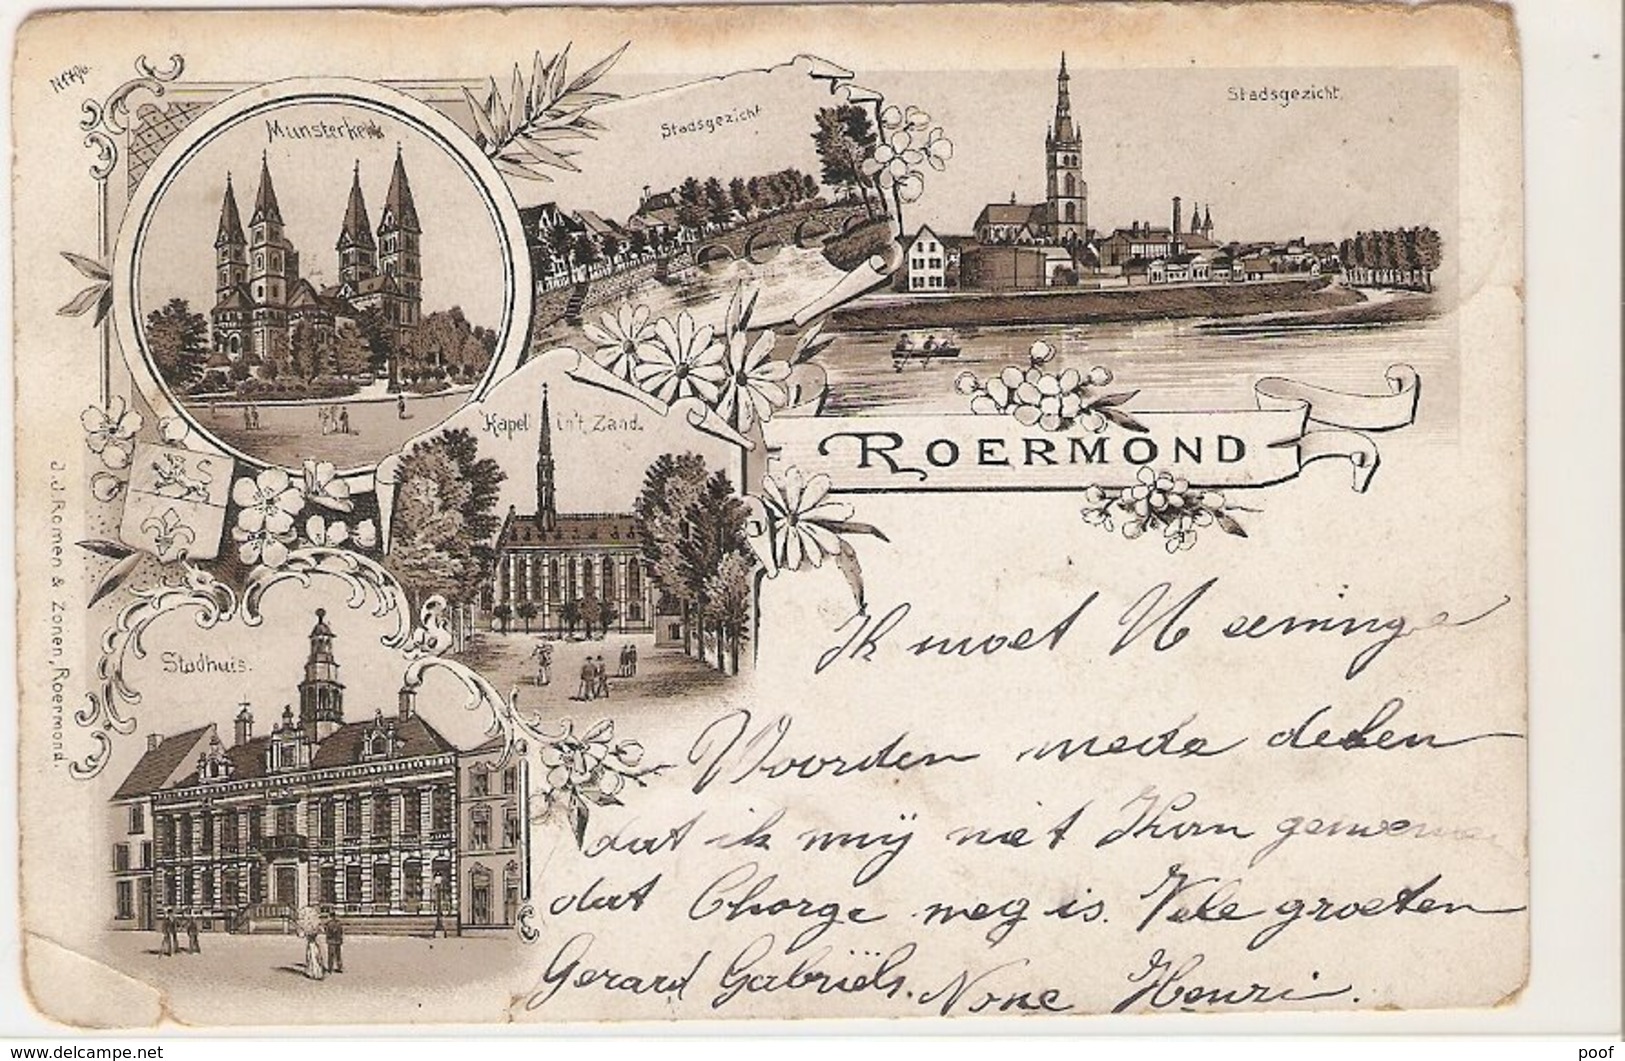 N 1796.
Munsterkerk
Stadsgezicht
Stadsgezicht.
Kapel in't Zand.
ROERMOND
Stadhuis.
J.J. Romen & Zonen, Roermond.
Ik moet U eeninge
Woorden mede delen
dat ik mij niet kan genwenen
dat Chorge weg is. Vele groeten
Gerard Gabriëls. None Henri.
delcampe.net
poof